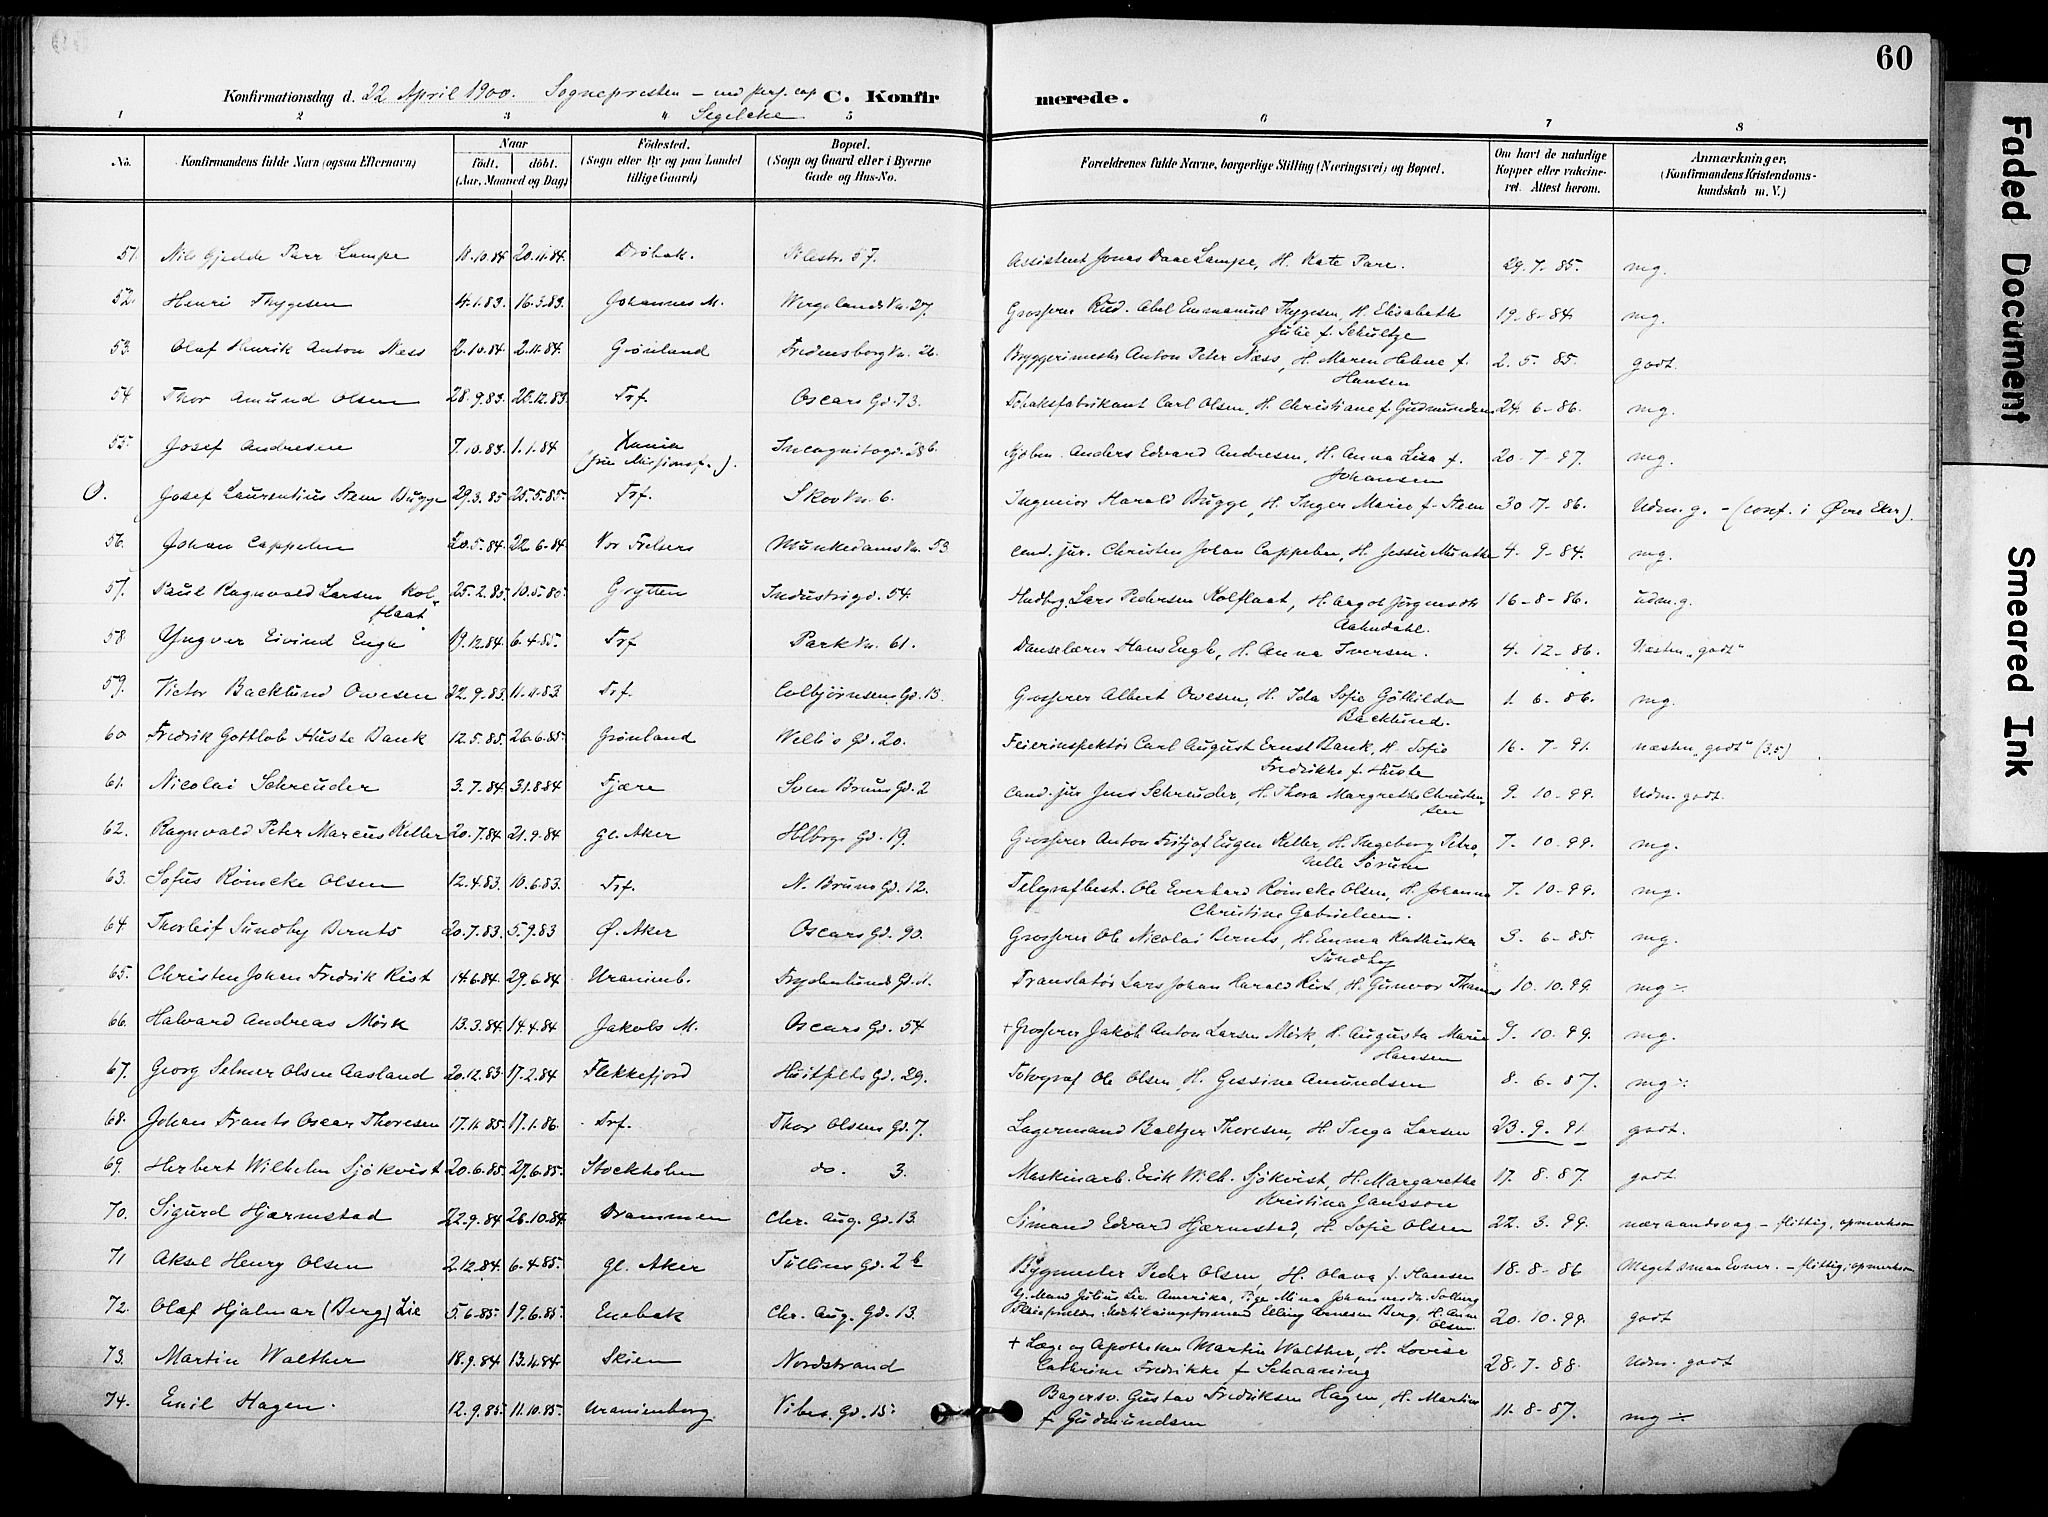 60
Konfirmationsdag d. 22 April 1900. Sognepresten – C. Konfirmerede.
Segelcke
1 2 3 4 5 6 7 8
No. Konfirmandens fulde Navn (ogsaa Efternavn) Naar født. døbt. (Aar, Maaned og Dag) Fødested. (Sogn eller By og paa Landet tillige Gaard) Bopæl. (Sogn og Gaard eller i Byerne Gade og Hus-No. Forældrenes fulde Navne, borgerlige Stilling (Næringsvei) og Bopæl. Om havt de naturlige Kopper eller vaccineret. Attest herom. Anmærkninger. (Konfirmandens Kristendomskundskab m. V.)
51. Nils Gjedde Parr Lampe 11.10.84 20.11.84. Drøbak. Pilestr. 57. Assistent Jonas Daae Lampe, H. Kate Parr. 29. 7. 85. mg.
52. Henri Thygesen 4.1.83. 16.3.83. Johannes M. Wergelands Vn. 27. Grosserer Rud. Abel Emmanuel Thygesen, H. Elisabeth 19. 8 - 84 mg.
Julie f. Schultze
53. Olaf Henrik Anton Næss 2.10.84 2.11.84. Grønland Fredensborg Vn. 26. Bryggerimester Anton Peter Næss, H. Maren Helene f. 2. 5. 85. godt.
Hansen
54 Thor Amund Olsen 28.9.83. 26.12.83. Trf. Oscars Gd. 73. Tobaksfabrikant Carl Olsen, H. Christiane f. Gudmundsen 24. 6 - 86. mg.
55. Josef Andresen 7.10.83. 1.1.84 Xania Incognitogd. 28 b. Kjøbm. Anders Edvard Andresen, H. Anna Lisa f. 20 - 7 - 97. mg.
(fri Missionsf.). Johansen
0. Josef Laurentius Steen Bugge 29.3.85 25.5.85. Trf. Skov Vn. 6. Ingeniør Harald Bugge, H. Inger Marie f. Steen 30. 7 - 86. Udm. g. - (conf. i Øvre Eker).
56. Johan Cappelen 20.5.84. 22.6.84 Vor Frelsers Munkedams Vn. 53 cand. jur. Christen Johan Cappelen, H. Jessie Munthe 4 - 9 - 84. mg.
57. Paul Ragnvald Larsen Kol- 25.2.85. 10.5.85. Grytten Industrigd. 54. Lars Pedersen Kolflaat, H. Jørgensdtr 16 - 8 - 86. udm. g.
flaat.
58 Yngver Eivind Engh 19.12.84. 6.4.85. Trf Park Vn. 61. Danselærer Hans Engh, H. Anna Iversen. 4. 12 - 86. Næsten "godt"
59. Victor Backlund Owesen 22.9.83. 11.11.83 Trf. Colbjørnsens Gd. 13. Grosserer Albert Owesen, H. Ida Sofie Gøthilda 1. 6 - 86. mg.
Backlund.
60 Fredrik Gottlob Huste Bank 12.5.85. 26.6.85. Grønland Welhs Gd. 20. Feierinspektør Carl August Ernst Bank, H. Sofie 16. 7 - 91. næsten "godt" (3.5)
Fredrikke f. Huste
61. Nicolai Schreuder 3.7.84 31.8.84 Fjære Sven Bruns Gd. 2 cand. jur Jens Schreuder, H. Thora Margrethe Christen- 9. 10 - 99. Udm. godt.
sen
62. Ragnvald Peter Marcus Keller 20.7.84 21.9.84 Gl. Aker Holbergs Gd. 19. Grosserer Anton Fritjof Eugen Keller, H. Ingeborg Petro- 7. 10 - 99. mg.
nelle Sørum
63. Sofus Rømcke Olsen 12.4.83. 10.6.83. Trf. N. Bruns Gd. 12. Telegrafbest. Ole Everhard Rømcke Olsen, H. Johanna 7. 10 - 99. mg.
Christine Gabrielsen.
64. Thorleif Sundby Bernts 20.7.83. 5.9.83 Ø. Aker Oscars Gd. 90. Grosserer Ole Nicolai Bernts, H. Emma Kathinka 3. 6 - 85. mg.
Sundby
65. Christen Johan Fredrik Kist 14.6.84 29.6.84 Uranienb. Frydenlunds Gd. Translatør Lars Johan Harald Kist, H. Gunvor Thams 10. 10. 99. mg ÷.
66. Halvard Andreas Mørk 13.3.84. 14.4.84 Jakobs M. Oscars Gd. 54 + Grosserer Jakob Anton Larsen Mørk, H. Augusta Marie 9. 10. 99. mg.
Hansen
67. Georg Selmer Olsen Aasland 20.12.83 17.2.84 Flekkefjord Huitfelts Gd. 29. Fotograf Ole Olsen, H. Gessine Amundsen 8. 6 - 87. mg ÷
68. Johan Frants Oscar Thoresen 17.11.85. 17.1.86. Trf. Thor Olsens Gd. 7. Lagermand Baltzer Thoresen, H. Inga Larsen 23. 9. 91. godt.
69. Herbert Wilhelm Sjøkvist 20.6.85. 27.6.85. Stockholm do. 3. Maskinarb. Erik Wilh. Sjøkvist, H. Margaretha 17. 8 - 87. godt.
Kristina Jansson
70. Sigurd Hjærmstad 22.9.84 26.10.84 Drammen Chr. Aug. Gd. 13. Simand Edvard Hjærmstad, H. Sofie Olsen 22. 3. 99. nær aandsvag - flittig, opmerksom
71 Aksel Henry Olsen 2.12.84. 6.4.85. Gl. Aker Tullins Gd. 2 b Bygmester Peder Olsen, H. Olava f. Hansen 18. 8 - 86 Meget smaa Evner. - flittig, opmerksom
72. Olaf Hjalmar (Berg) Lie 5.6.85. 19.6.85. Enebak Chr. Aug. Gd. 13. G. Mand Julius Lie, Amerika, Pige Mina Johannesdtr. Solberg 20. 10. 99. godt
Pleieforældre: Elling Arnesen Berg, H. Anne Olsen
73. Martin Walther 18.9.84 13.4.84 Skien Nordstrand + Læge og Apotheker Martin Walther, H. Lovise 28. 7 - 88. Udm. godt
Cathrine Fredrikke f Schaaning
74. Emil Hagen. 12.9.85. 11.10.85. Uranienborg Vibes Gd. 15. Bagersv. Gustav Fredriksen Hagen, H. Martine 11. 8 - 87. mg ÷
f Gudmundsen
Faded Document
Smeared Ink